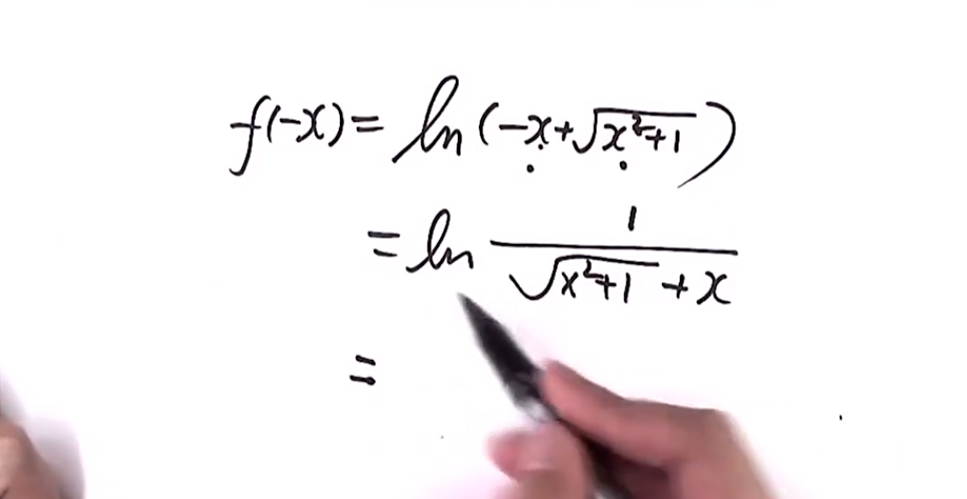 f(-x) = ln(-x+√(x²+1))
= ln 1/(√(x²+1) + x)
=